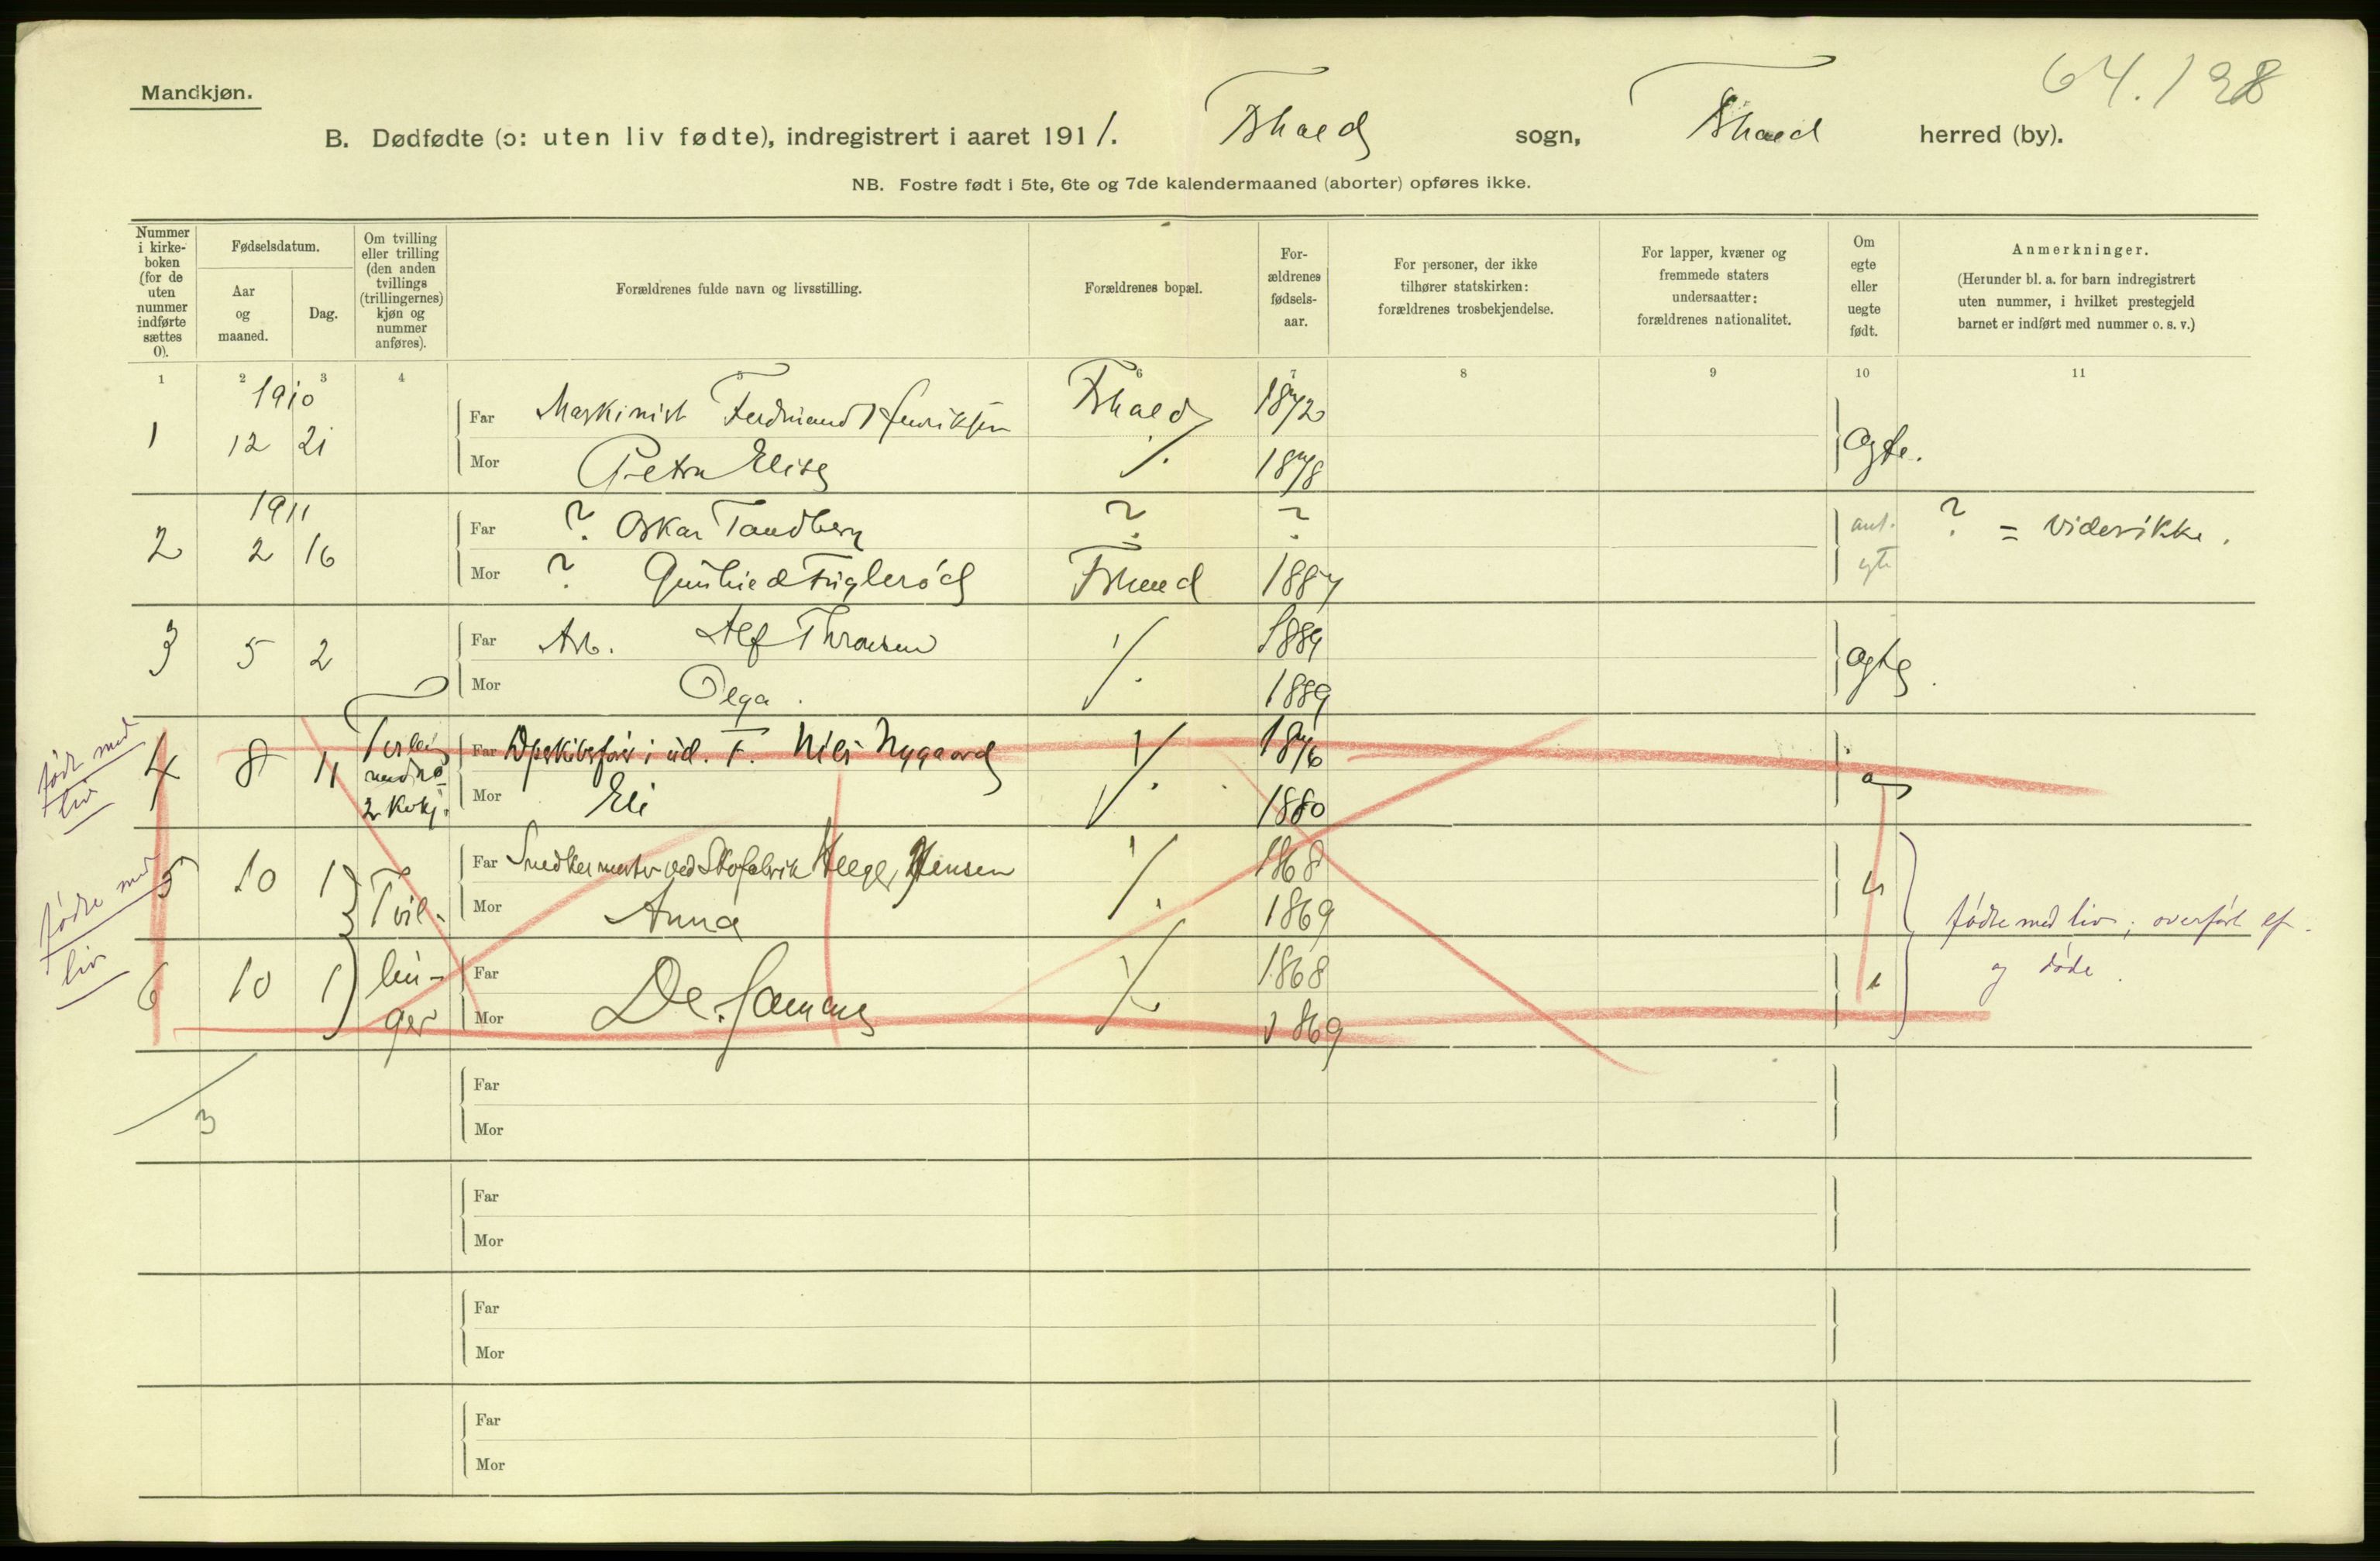 64.128
Mandkjøn.
B. Dødfødte (ɔ: uten liv fødte), indregistrert i aaret 1911. Fhald sogn, Fhald herred (by).
NB. Fostre født i 5te, 6te og 7de kalendermaaned (aborter) opføres ikke.
Nummer i kirke-boken (for de uten nummer indførte sættes 0).
Fødselsdatum.
Aar og maaned.
Dag.
Om tvilling eller trilling (den anden tvillings (trillingernes) kjøn og nummer anføres).
Forældrenes fulde navn og livsstilling.
Forældrenes bopæl.
For-ældrenes fødsels-aar.
For personer, der ikke tilhører statskirken: forældrenes trosbekjendelse.
For lapper, kvæner og fremmede staters undersaatter: forældrenes nationalitet.
Om egte eller uegte født.
Anmerkninger.
(Herunder bl. a. for barn indregistrert uten nummer, i hvilket prestegjeld barnet er indført med nummer o. s. v.)
1 2 3 4 5 6 7 8 9 10 11
1910
1 12 21 Far Maskinist Ferdinand Henriksen Fhald 1872 Ægte.
Mor Petra Elise ./. 1878
1911
2 2 16 Far ? Oskar Tandberg ? ? ant. egte ? = vides ikke.
Mor ? Gunhild Fuglerød Fhald 1887
3 5 2 Far Arb. Alf Thronsen ./. 1889 Ægte.
Mor Olga. 1889
født med liv
4 8 11 2 Kvkj. Far i ud. F. Nils Nygaard ./. 1876 æ
Mor Eli 1880
fødte med liv
5 10 1 Tvil- Far Snedkermester ved Skofabrik Helge Jensen ./. 1868
Mor Anna 1869
fødte med liv; overført lf. og døde.
6 10 1 lin-ger Far De samme ./. 1868
Mor 1869
3
Far
Mor
Far
Mor
Far
Mor
Far
Mor